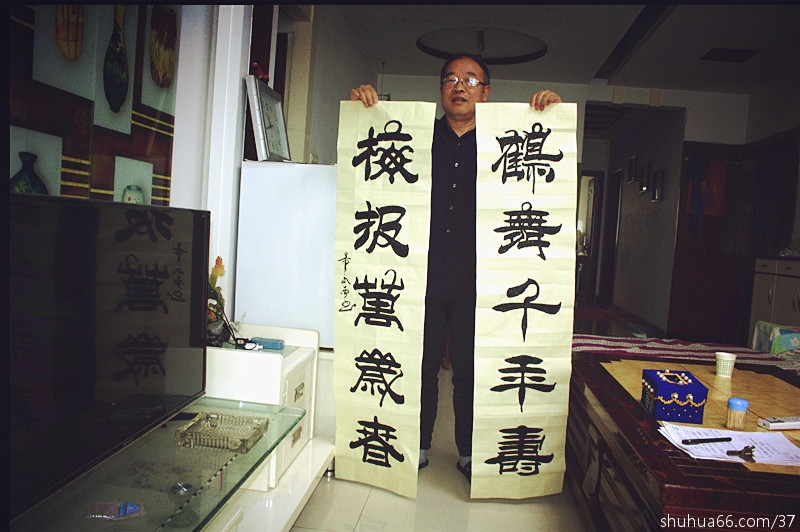 鶴舞千年壽
梅报萬歲春
shuhua66.com/37